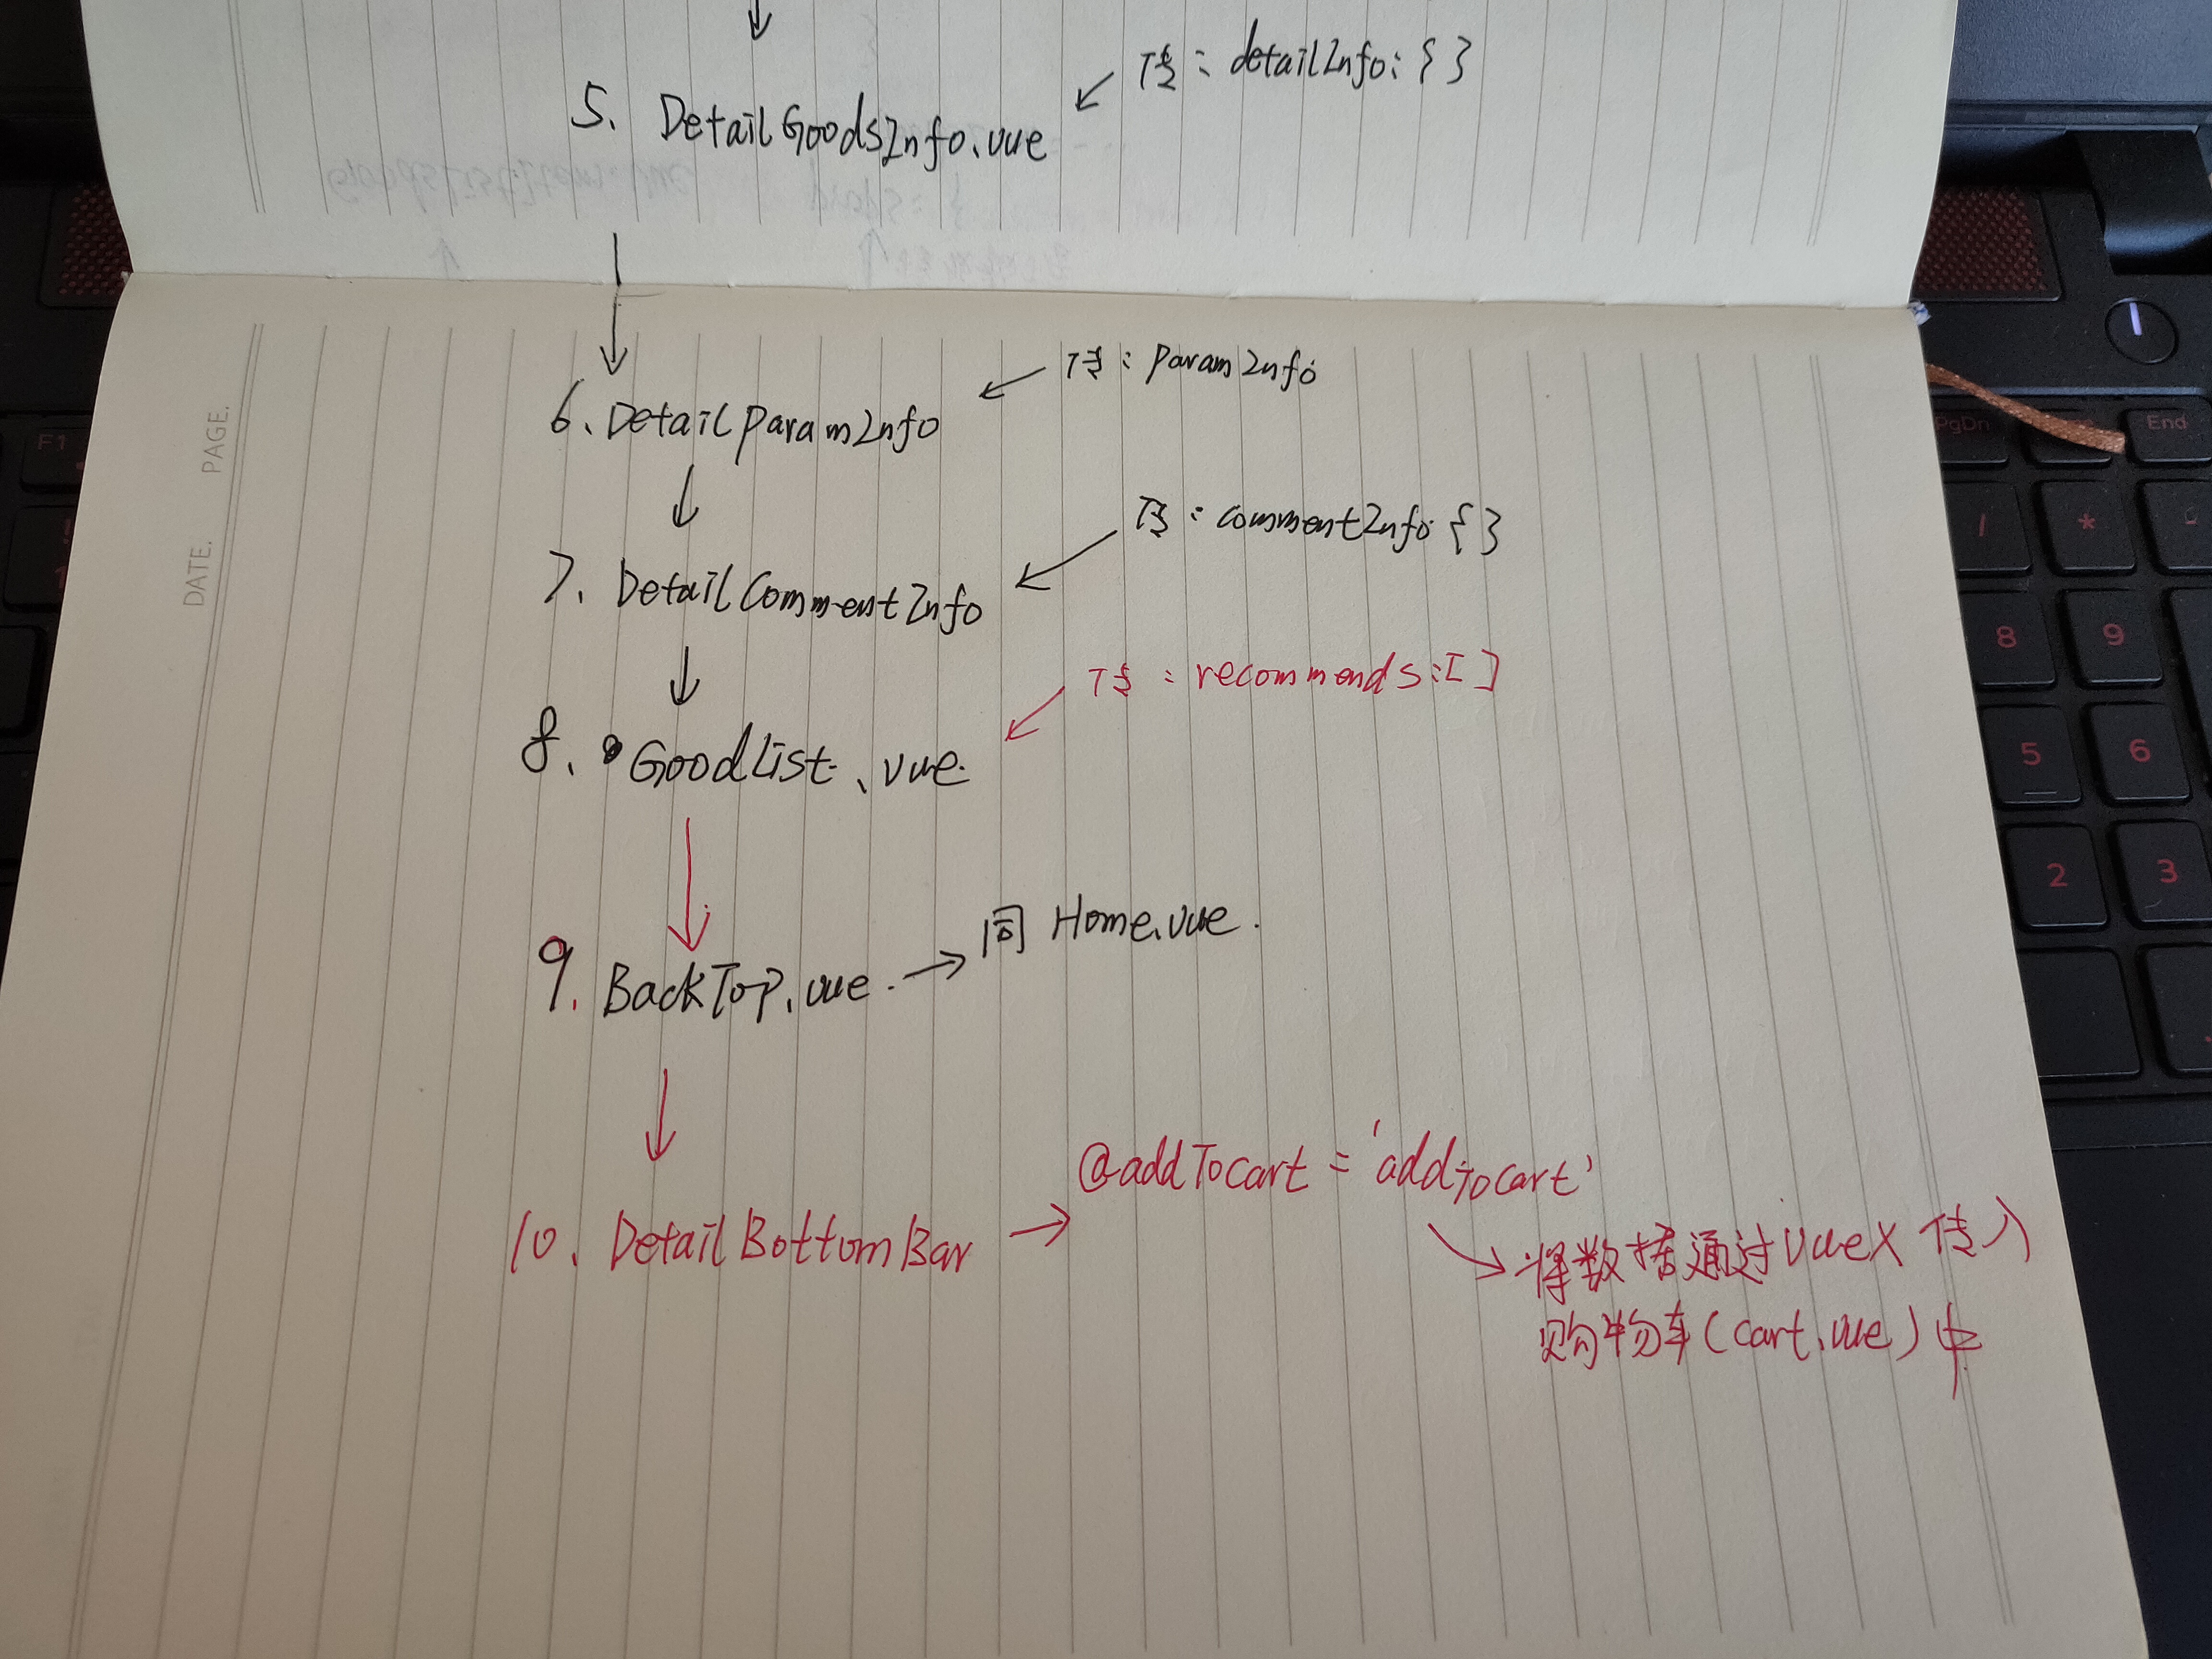 传：detailInfo：{ }
5、DetailGoodsInfo.vue
传：paramInfo
6、DetailParamInfo
传：commentInfo {}
7、DetailCommentInfo
传：recommends：[ ]
8、GoodList.vue
9、BackTop.vue. → 同 Home.vue.
@addTocart = 'addTocart'
10、DetailBottomBar
将数据通过VueX 传入
购物车(cart.vue)中
DATE. PAGE.
F1
PgDn
End
/
*
8
9
5
6
2
3